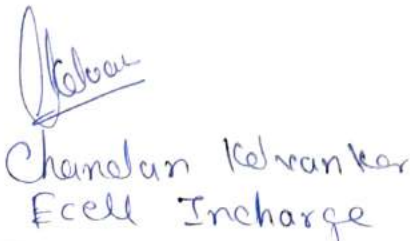 Chandan Kelvankar
Ecell Incharge